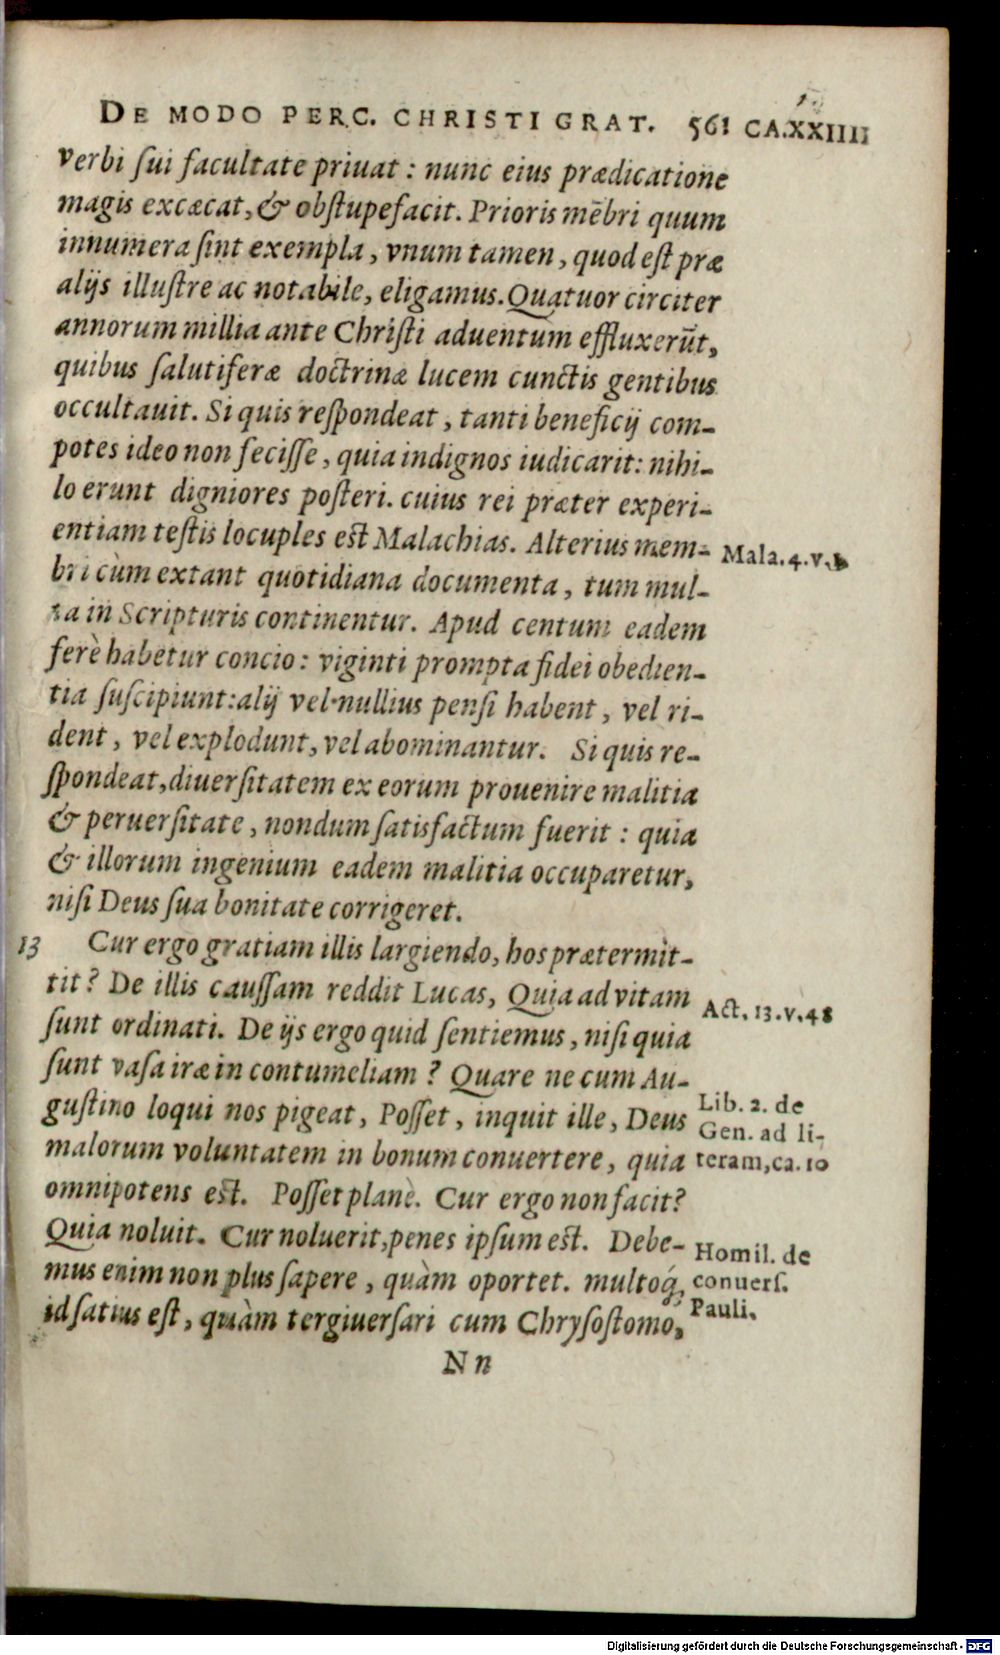 DE MODO PERC. CHRISTI GRAT. 561 CA.XXIIII
verbi ſui facultate priuat : nunc eius prædicatione
magis excæcat, & obſtupefacit. Prioris mēbri quum
innumera ſint exempla, vnum tamen, quod eſt præ
alijs illuſtre ac notabile, eligamus. Quatuor circiter
annorum millia ante Chriſti aduentum effluxerūt,
quibus ſalutiferæ doctrinæ lucem cunctis gentibus
occultauit. Si quis reſpondeat, tanti beneficij com-
potes ideo non feciſſe, quia indignos iudicarit: nihi-
lo erunt digniores poſteri. cuius rei præter experi-
entiam teſtis locuples eſt Malachias. Alterius mem-
Mala.4.v.1
bri cùm extant quotidiana documenta, tum mul-
ta in Scripturis continentur. Apud centum eadem
ferè habetur concio: viginti prompta fidei obedien-
tia ſuſcipiunt: alij vel nullius penſi habent, vel ri-
dent, vel explodunt, vel abominantur. Si quis re-
ſpondeat, diuerſitatem ex eorum prouenire malitia
& peruerſitate, nondum ſatisfactum fuerit : quia
& illorum ingenium eadem malitia occuparetur,
niſi Deus ſua bonitate corrigeret.
13 Cur ergo gratiam illis largiendo, hos prætermit-
tit? De illis cauſſam reddit Lucas, Quia ad vitam
Act. 13.v.48
ſunt ordinati. De ijs ergo quid ſentiemus, niſi quia
ſunt vaſa iræ in contumeliam? Quare ne cum Au-
guſtino loqui nos pigeat, Poſſet, inquit ille, Deus
Lib. 2. de
Gen. ad li-
malorum voluntatem in bonum conuertere, quia
teram, ca. 10
omnipotens eſt. Poſſet planè. Cur ergo non facit?
Quia noluit. Cur noluerit, penes ipſum eſt. Debe-
Homil. de
mus enim non plus ſapere, quàm oportet. multoq́;
conuerſ.
Pauli.
id ſatius eſt, quàm tergiuerſari cum Chryſoſtomo,
N n
Digitalisierung gefördert durch die Deutsche Forschungsgemeinschaft - DFG